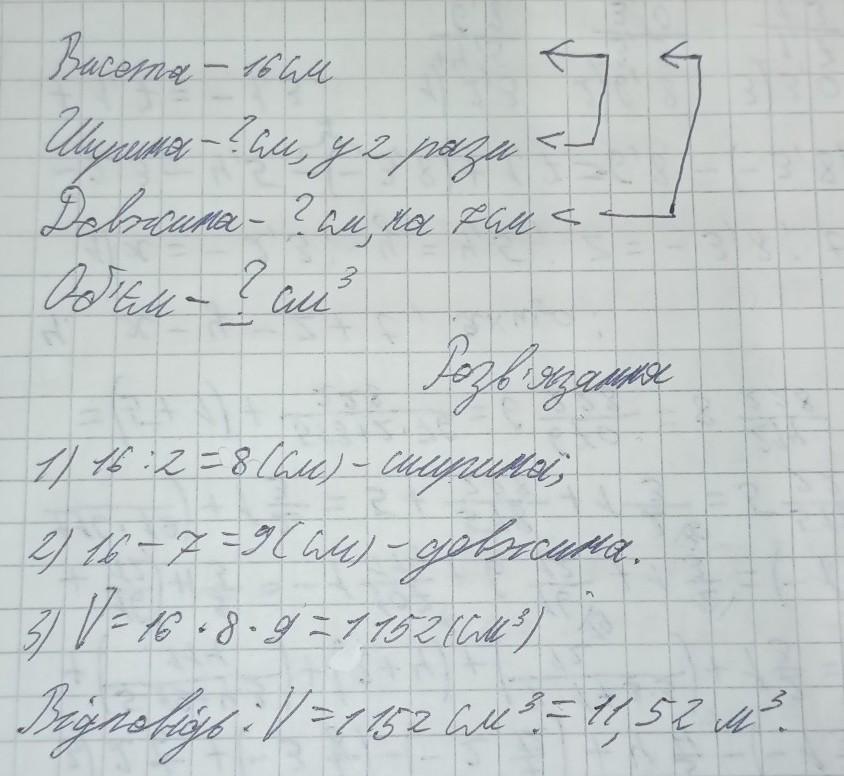 Висота – 16 см
Ширина – ? см, у 2 рази <
Довжина – ? см, на 7 см <
Об'єм – ? см³
Розв'язання
1) 16 : 2 = 8 (см) – ширина;
2) 16 – 7 = 9 (см) – довжина.
3) V = 16 · 8 · 9 = 1152 (см³)
Відповідь: V = 1152 см³. = 11,52 м³.